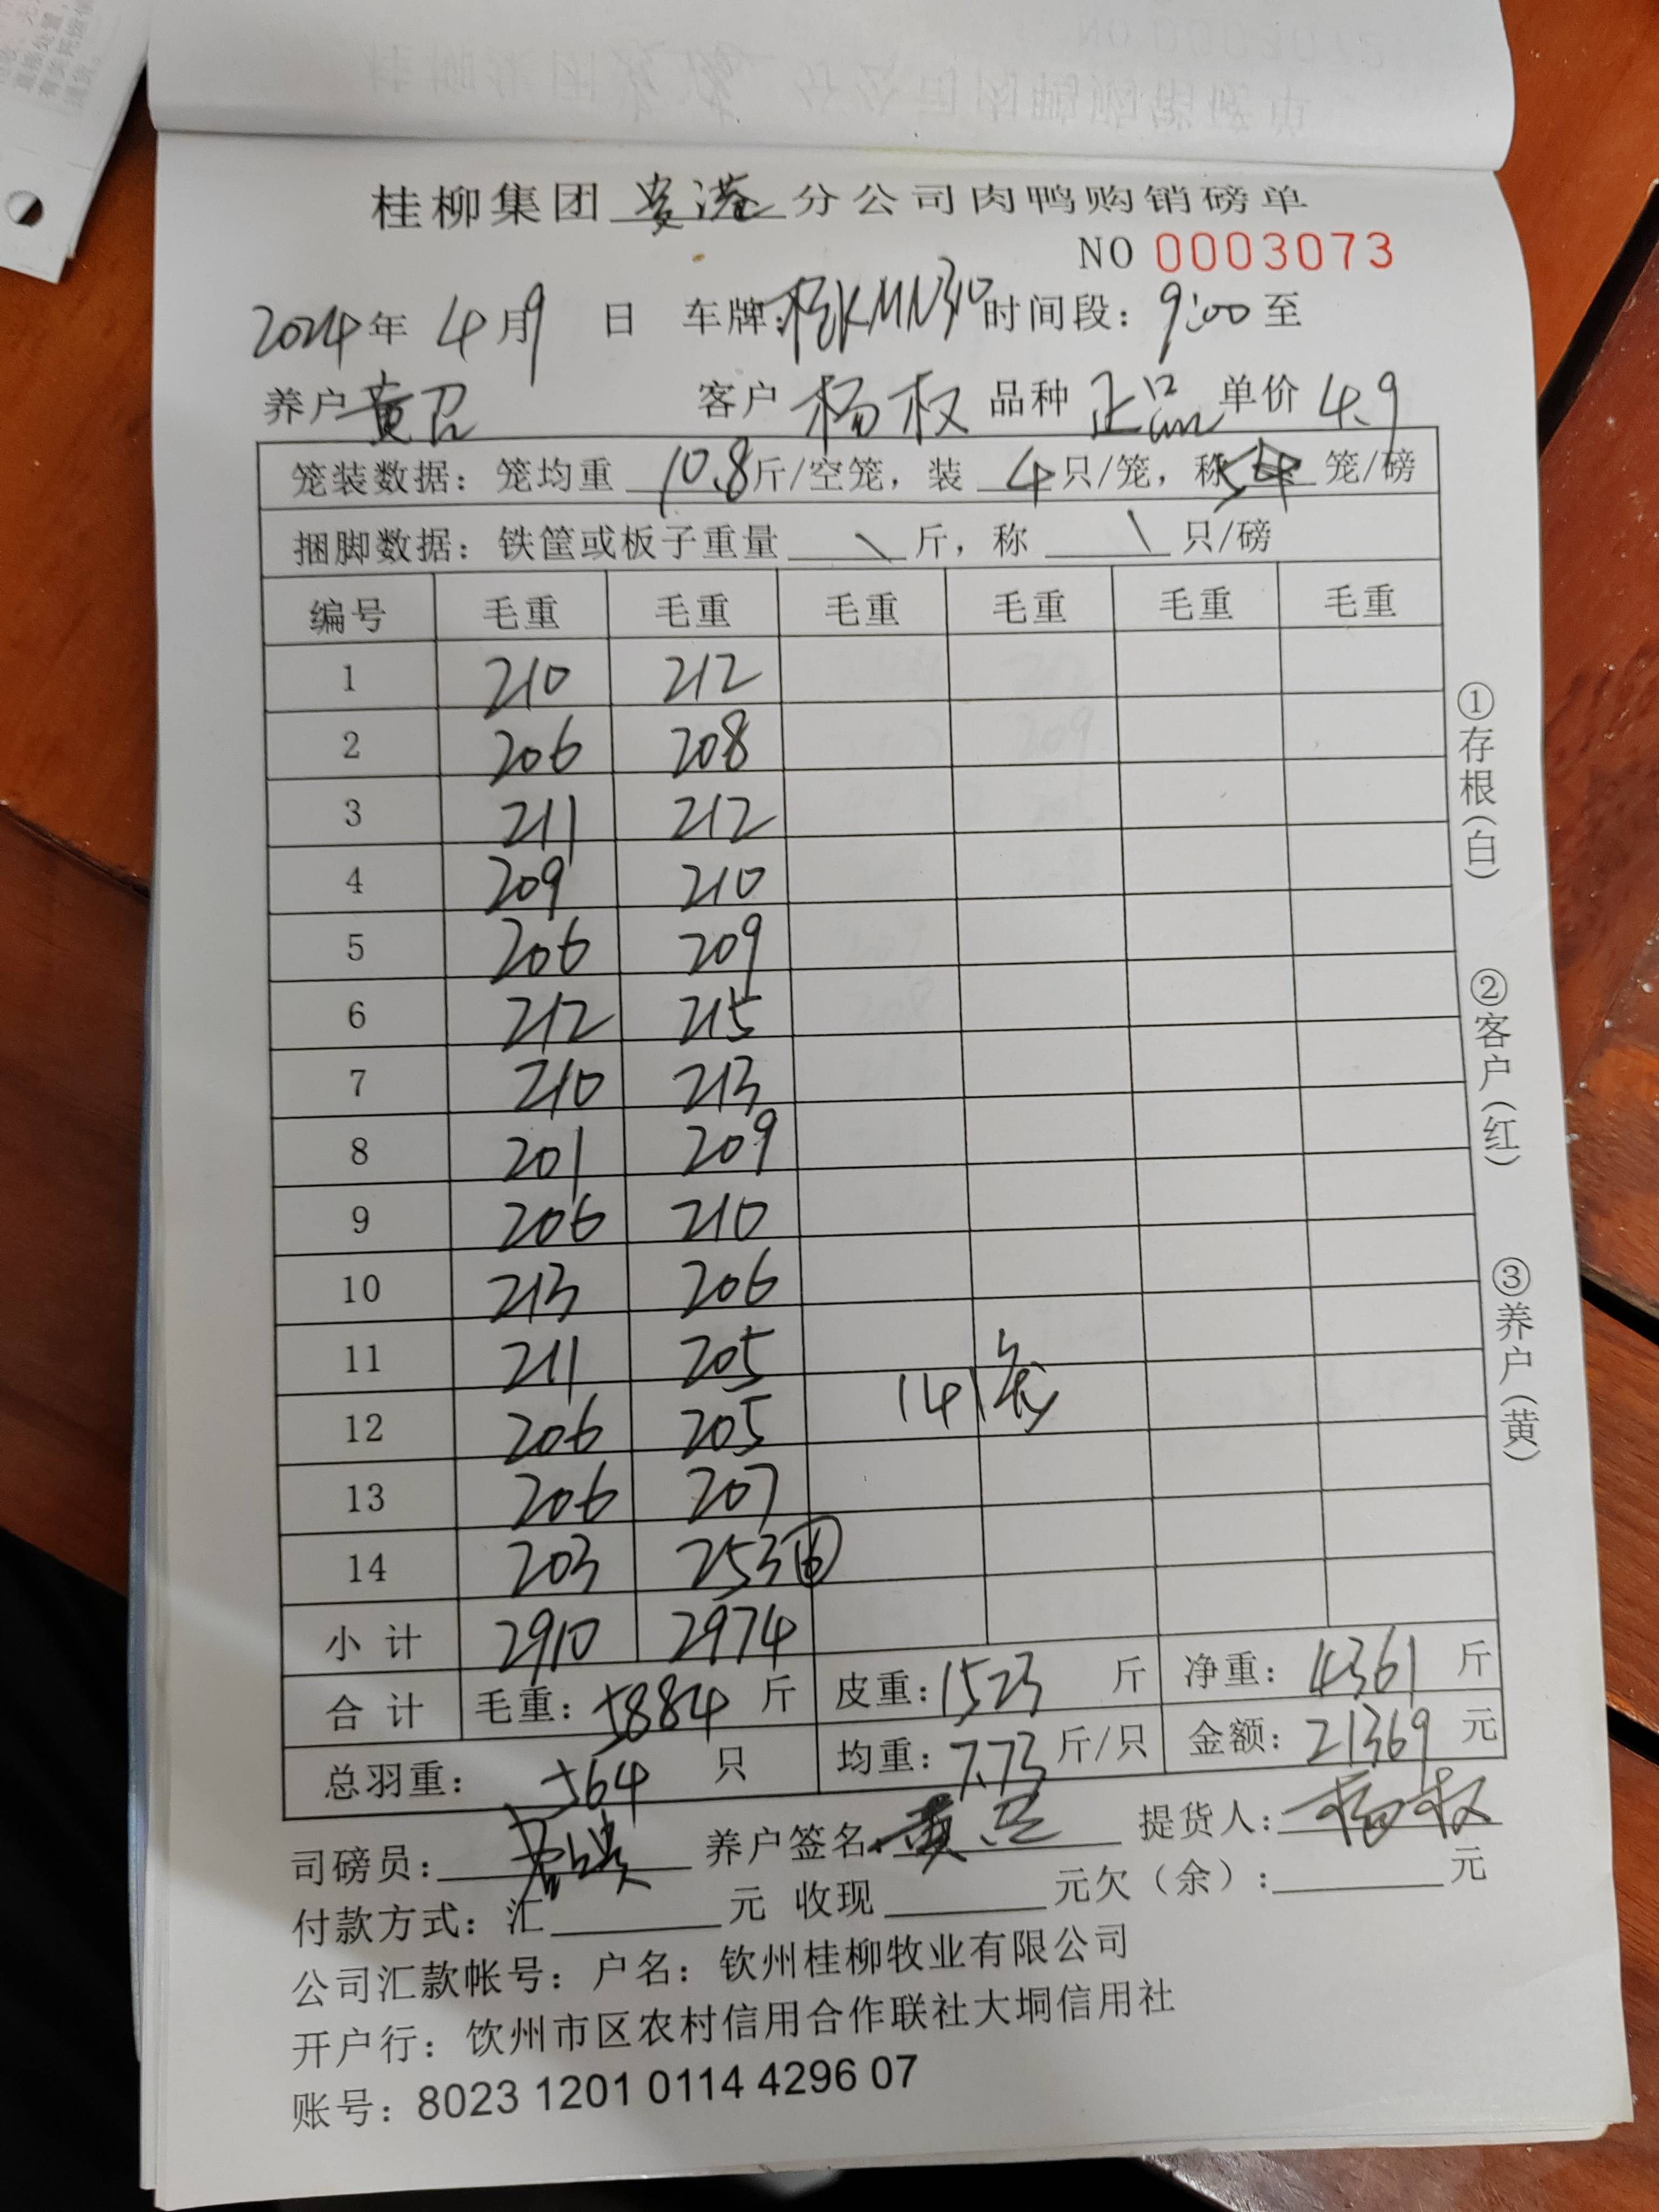 桂柳集团贵港分公司肉鸭购销磅单
NO 0003073
2024年 4月9 日 车牌:桂KMN310 时间段: 9:00至
养户 黄召 客户 杨权 品种 正品 单价 4.9
笼装数据: 笼均重 10.8斤/空笼, 装 4只/笼, 称 笼/磅
捆脚数据: 铁筐或板子重量 \ 斤, 称 \ 只/磅
编号 毛重 毛重 毛重 毛重 毛重 毛重
1 210 212
2 206 208
3 211 212
4 209 210
5 206 209
6 212 215
7 210 213
8 201 209
9 206 210
10 213 206
11 211 205
12 206 205 141笼
13 206 207
14 203 253⑥
小计 2910 2974
合计 毛重: 5884 斤 皮重: 1523 斤 净重: 4361 斤
总羽重: 564 只 均重: 7.73 斤/只 金额: 21369 元
司磅员: 养户签名 黄召 提货人: 杨权
付款方式: 汇 元 收现 元欠(余): 元
公司汇款帐号: 户名: 钦州桂柳牧业有限公司
开户行: 饮州市区农村信用合作联社大垌信用社
账号: 8023 1201 0114 4296 07
①存根(白) ②客户(红) ③养户(黄)